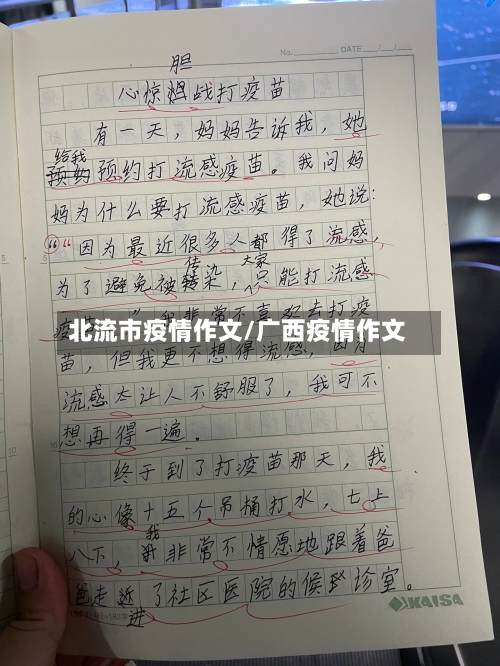 No. DATE / /
胆
心惊战打疫苗
有一天，妈妈告诉我，她
给我
预约预约打流感疫苗。我问妈
妈为什么要打流感疫苗，她说：
“因为最近很多人都得了流感，
传 大家
为了避免被染，只能打流感
北流市疫情作文/广西疫情作文
苗，但我更不想得流感，因为
流感太让人不舒服了，我可不
想再得一遍。
终于到了打疫苗那天，我
的心像十五个吊桶打水，七上
我
八下，非常不情愿地跟着爸
爸走近了社区医院的候诊室。
进
KAISA